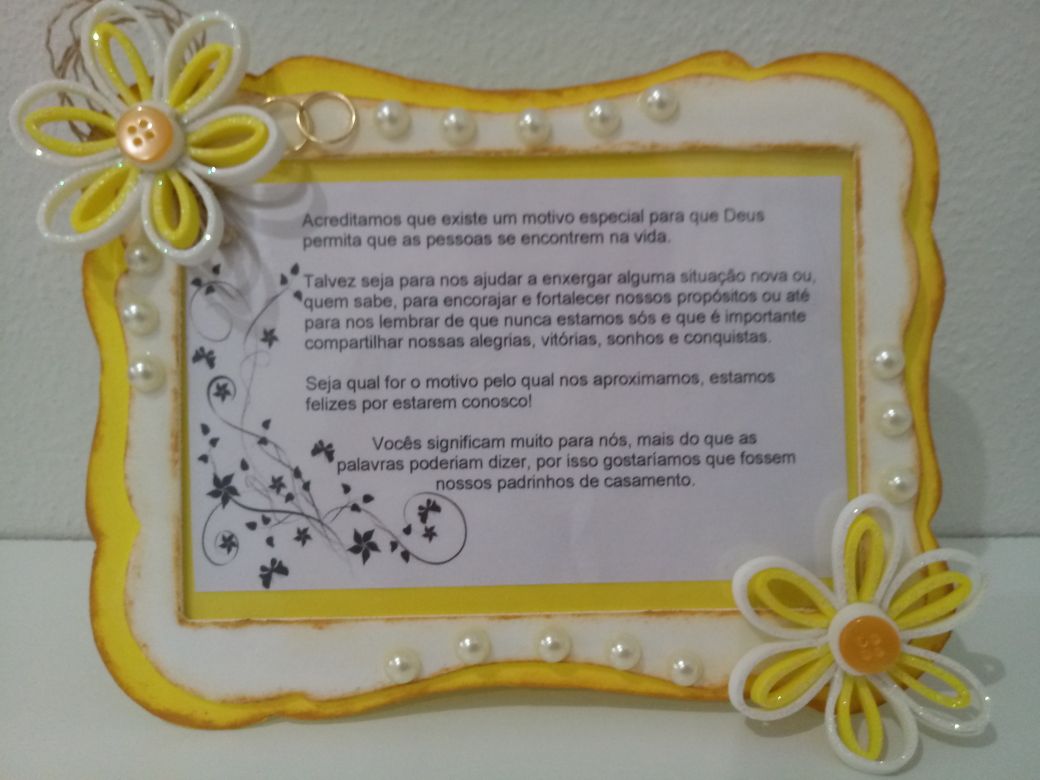 Acreditamos que existe um motivo especial para que Deus
permita que as pessoas se encontrem na vida.
Talvez seja para nos ajudar a enxergar alguma situação nova ou,
quem sabe, para encorajar e fortalecer nossos propósitos ou até
para nos lembrar de que nunca estamos sós e que é importante
compartilhar nossas alegrias, vitórias, sonhos e conquistas.
Seja qual for o motivo pelo qual nos aproximamos, estamos
felizes por estarem conosco!
Vocês significam muito para nós, mais do que as
palavras poderiam dizer, por isso gostaríamos que fossem
nossos padrinhos de casamento.